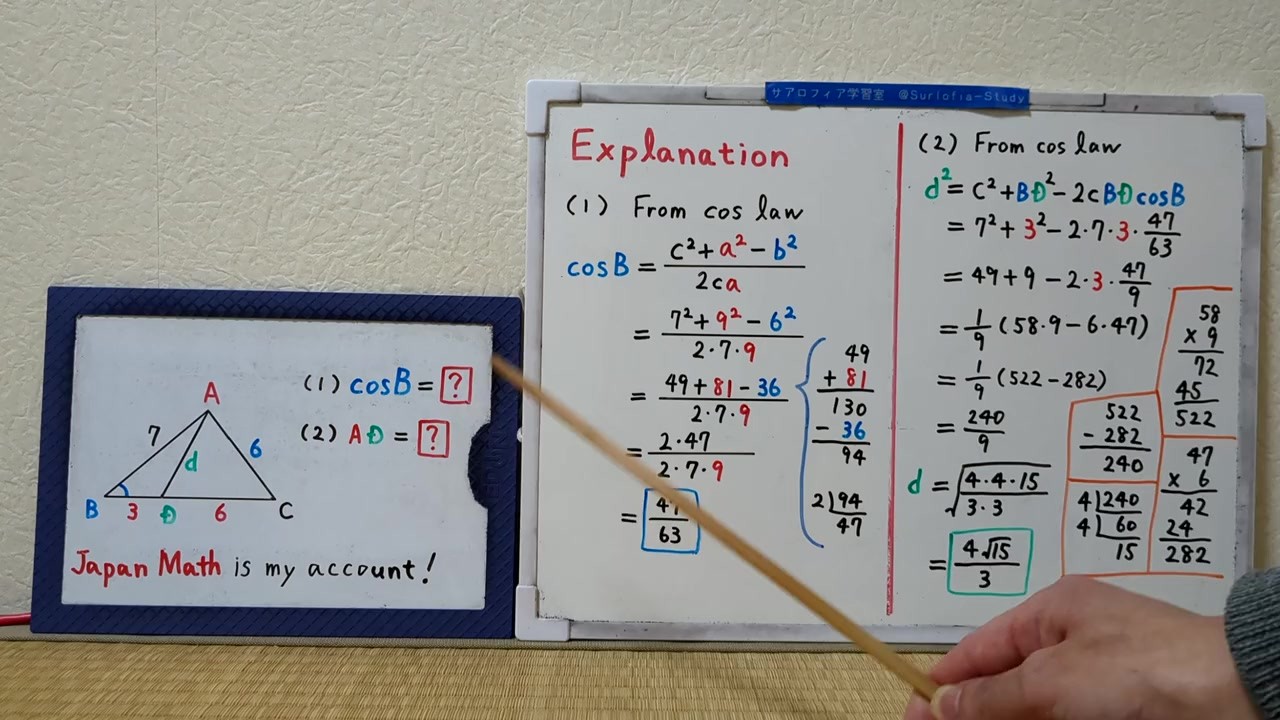 A
7
6
d
B 3 D 6 C
(1) cosB = ?
(2) AD = ?
Japan Math is my account!
サアロフィア学習室 @Surlofia-Study
Explanation
(1) From cos law
cosB = (c²+a²-b²)/(2ca)
= (7²+9²-6²)/(2·7·9)
= (49+81-36)/(2·7·9)
= (2·47)/(2·7·9)
= 47/63
49
+ 81
130
- 36
94
2)94
47
(2) From cos law
d² = c²+BD²-2cBDcosB
= 7²+3²-2·7·3·47/63
= 49+9-2·3·47/9
= 1/9(58·9-6·47)
= 1/9(522-282)
= 240/9
d = √(4·4·15/3·3)
= 4√15/3
58
x 9
72
45
522
522
- 282
240
4)240
4)60
15
47
x 6
42
24
282